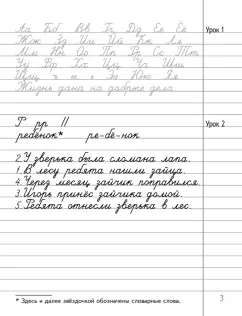 Аа Бб Вв Гг Дд Ее Ёё
Жж Зз Ии Йй Кк Лл
Мм Нн Оо Пп Рр Сс Тт
Уу Фф Хх Цц Чч Шш
Щщ ъ ы ь Ээ Юю Яя
Жизнь дана на добрые дела
Урок 1
Р рр //
Урок 2
ребёнок* ре-бё-нок
2. У зверька была сломана лапа.
1. В лесу ребята нашли зайца.
4. Через месяц зайчик поправился.
3. Игорь принёс зайчика домой.
5. Ребята отнесли зверька в лес.
* Здесь и далее звёздочкой обозначены словарные слова.
3